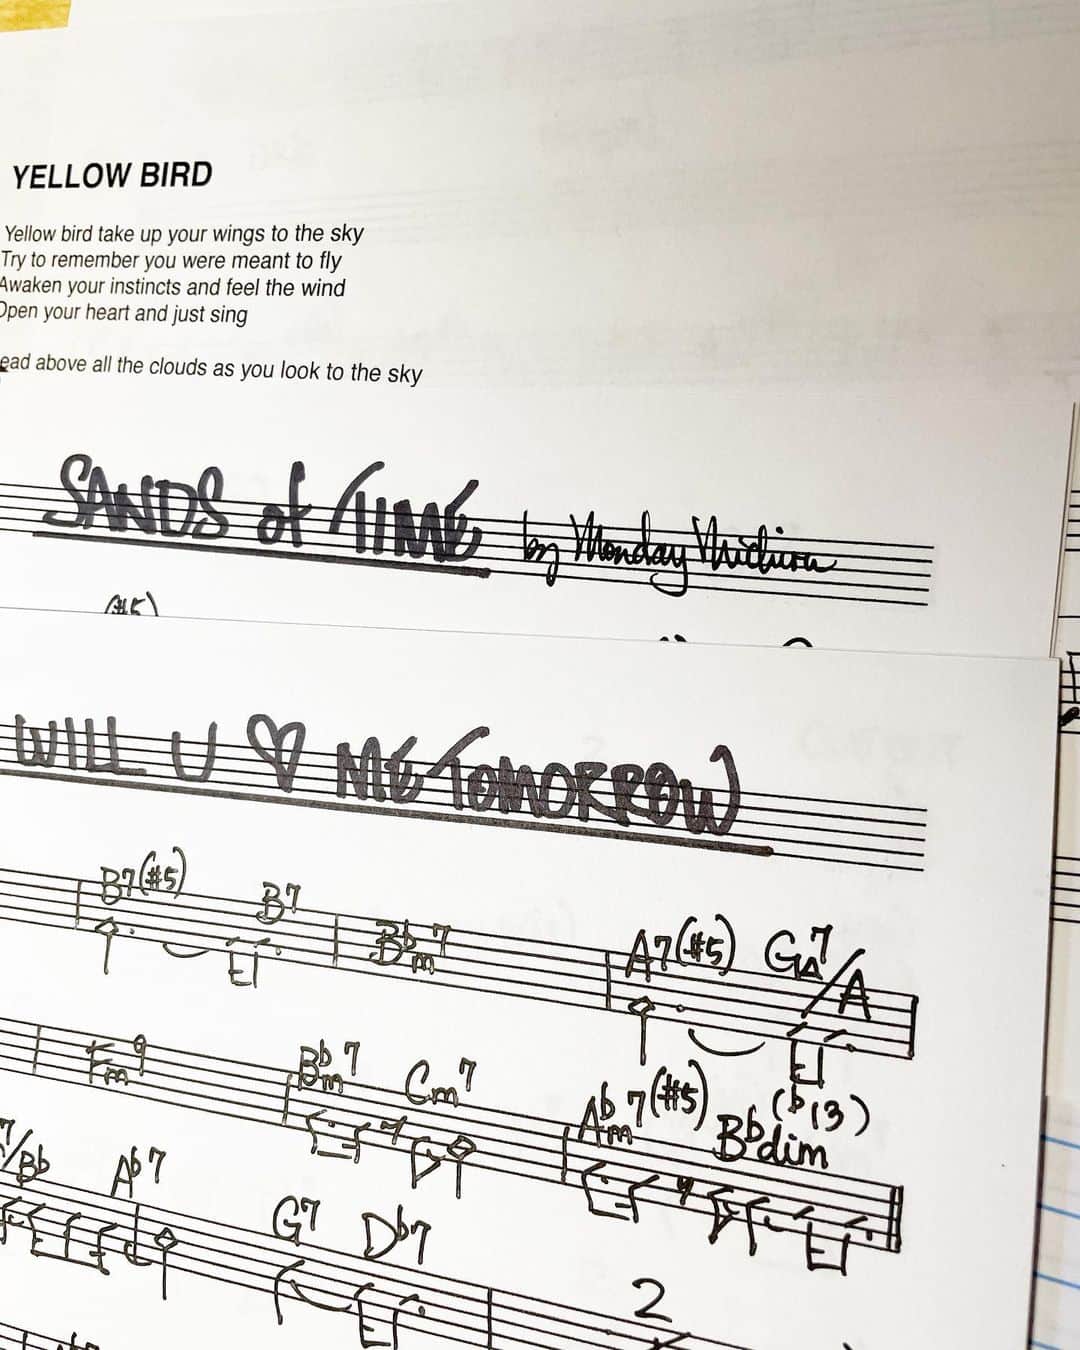 YELLOW BIRD
Yellow bird take up your wings to the sky
Try to remember you were meant to fly
Awaken your instincts and feel the wind
Open your heart and just sing
ead above all the clouds as you look to the sky
SANDS of TIME by Monday Michiru
(#5)
WILL U ♡ ME TOMORROW
B7(#5) B7 Bbm7 A7(#5) G△7/A
Fm9 Bbm7 Cm7 Abm7(#5) Bbdim(b13)
7/Bb Ab7 G7 Db7
2